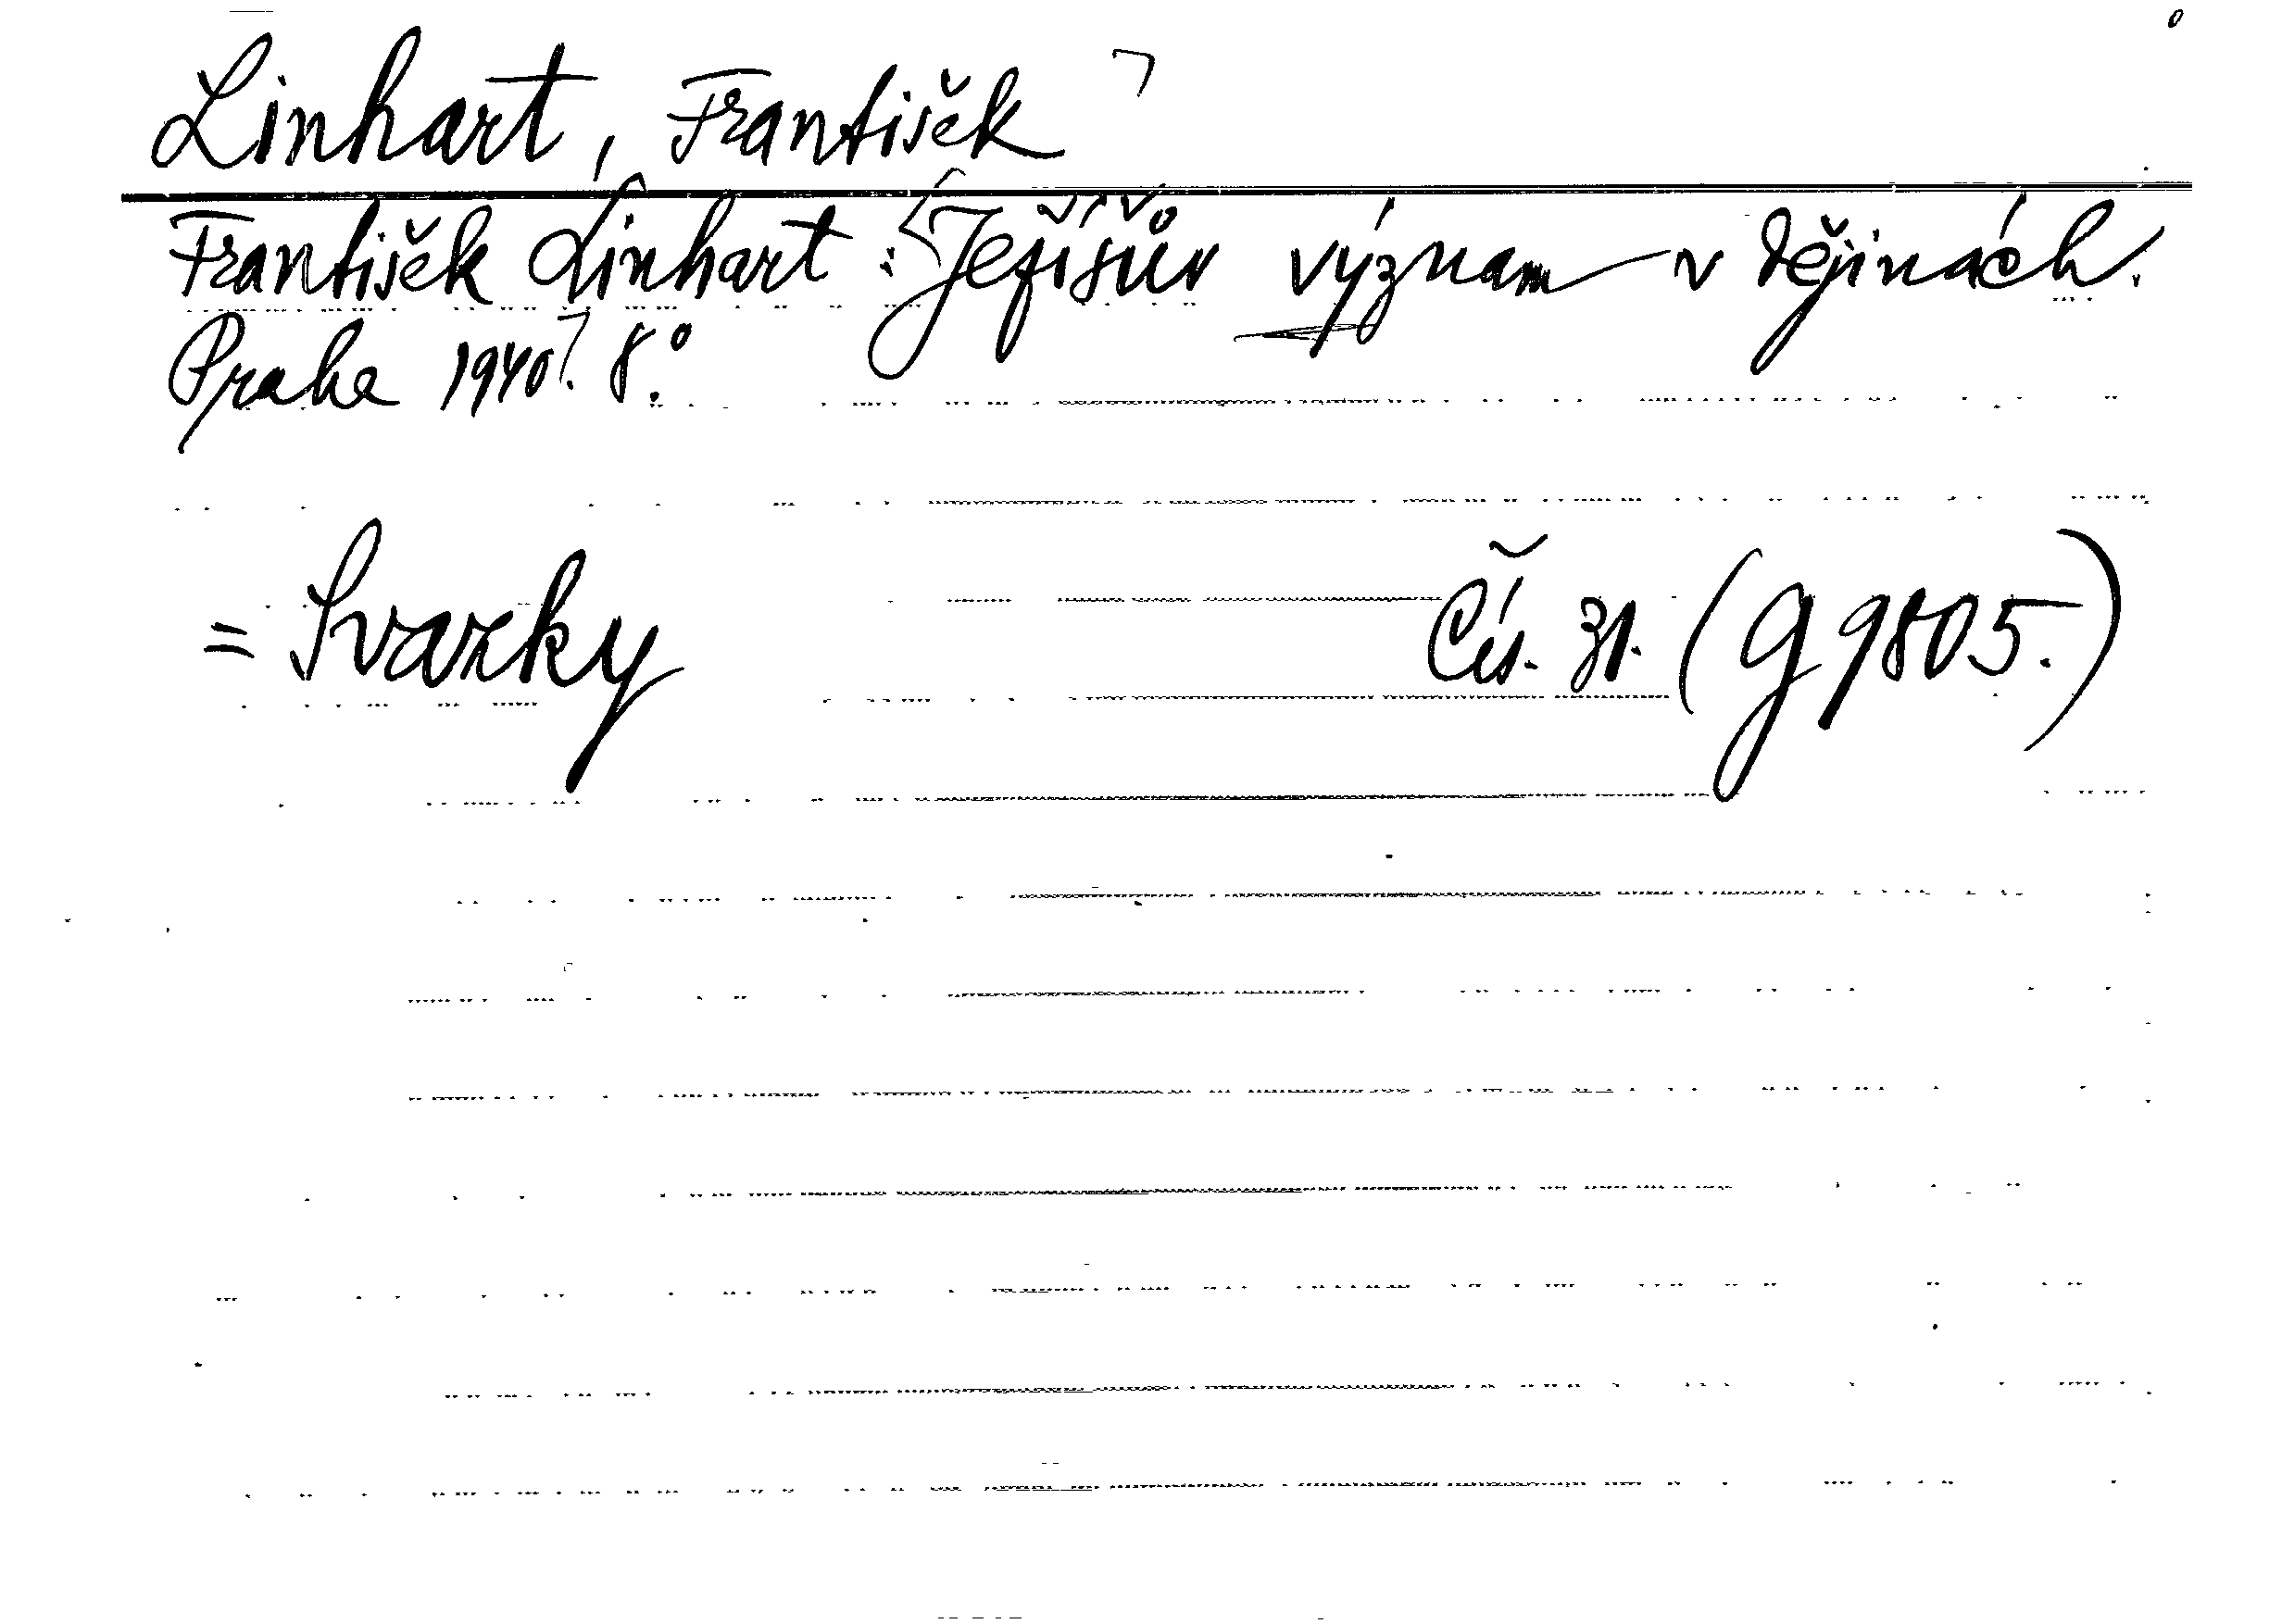 Linhart, František
František Linhart: Ježíšův význam v dějinách.
Praha 1940. 8.°
= Svazky Čís. 31. (G 9805.)